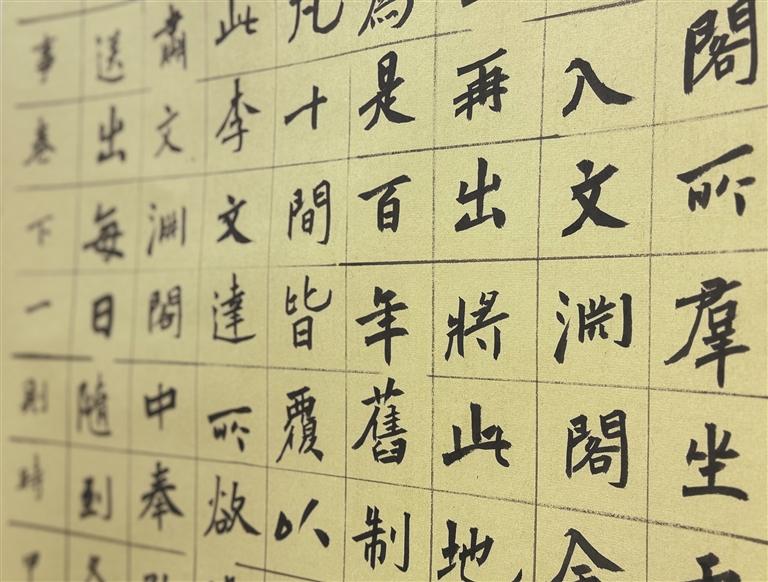 閣所羣坐
入文淵閣
再出將此地
為是百年舊制
凡十間皆覆以
此李文達所欲
肅文淵閣中奉
送出每日隨到
事下一則時